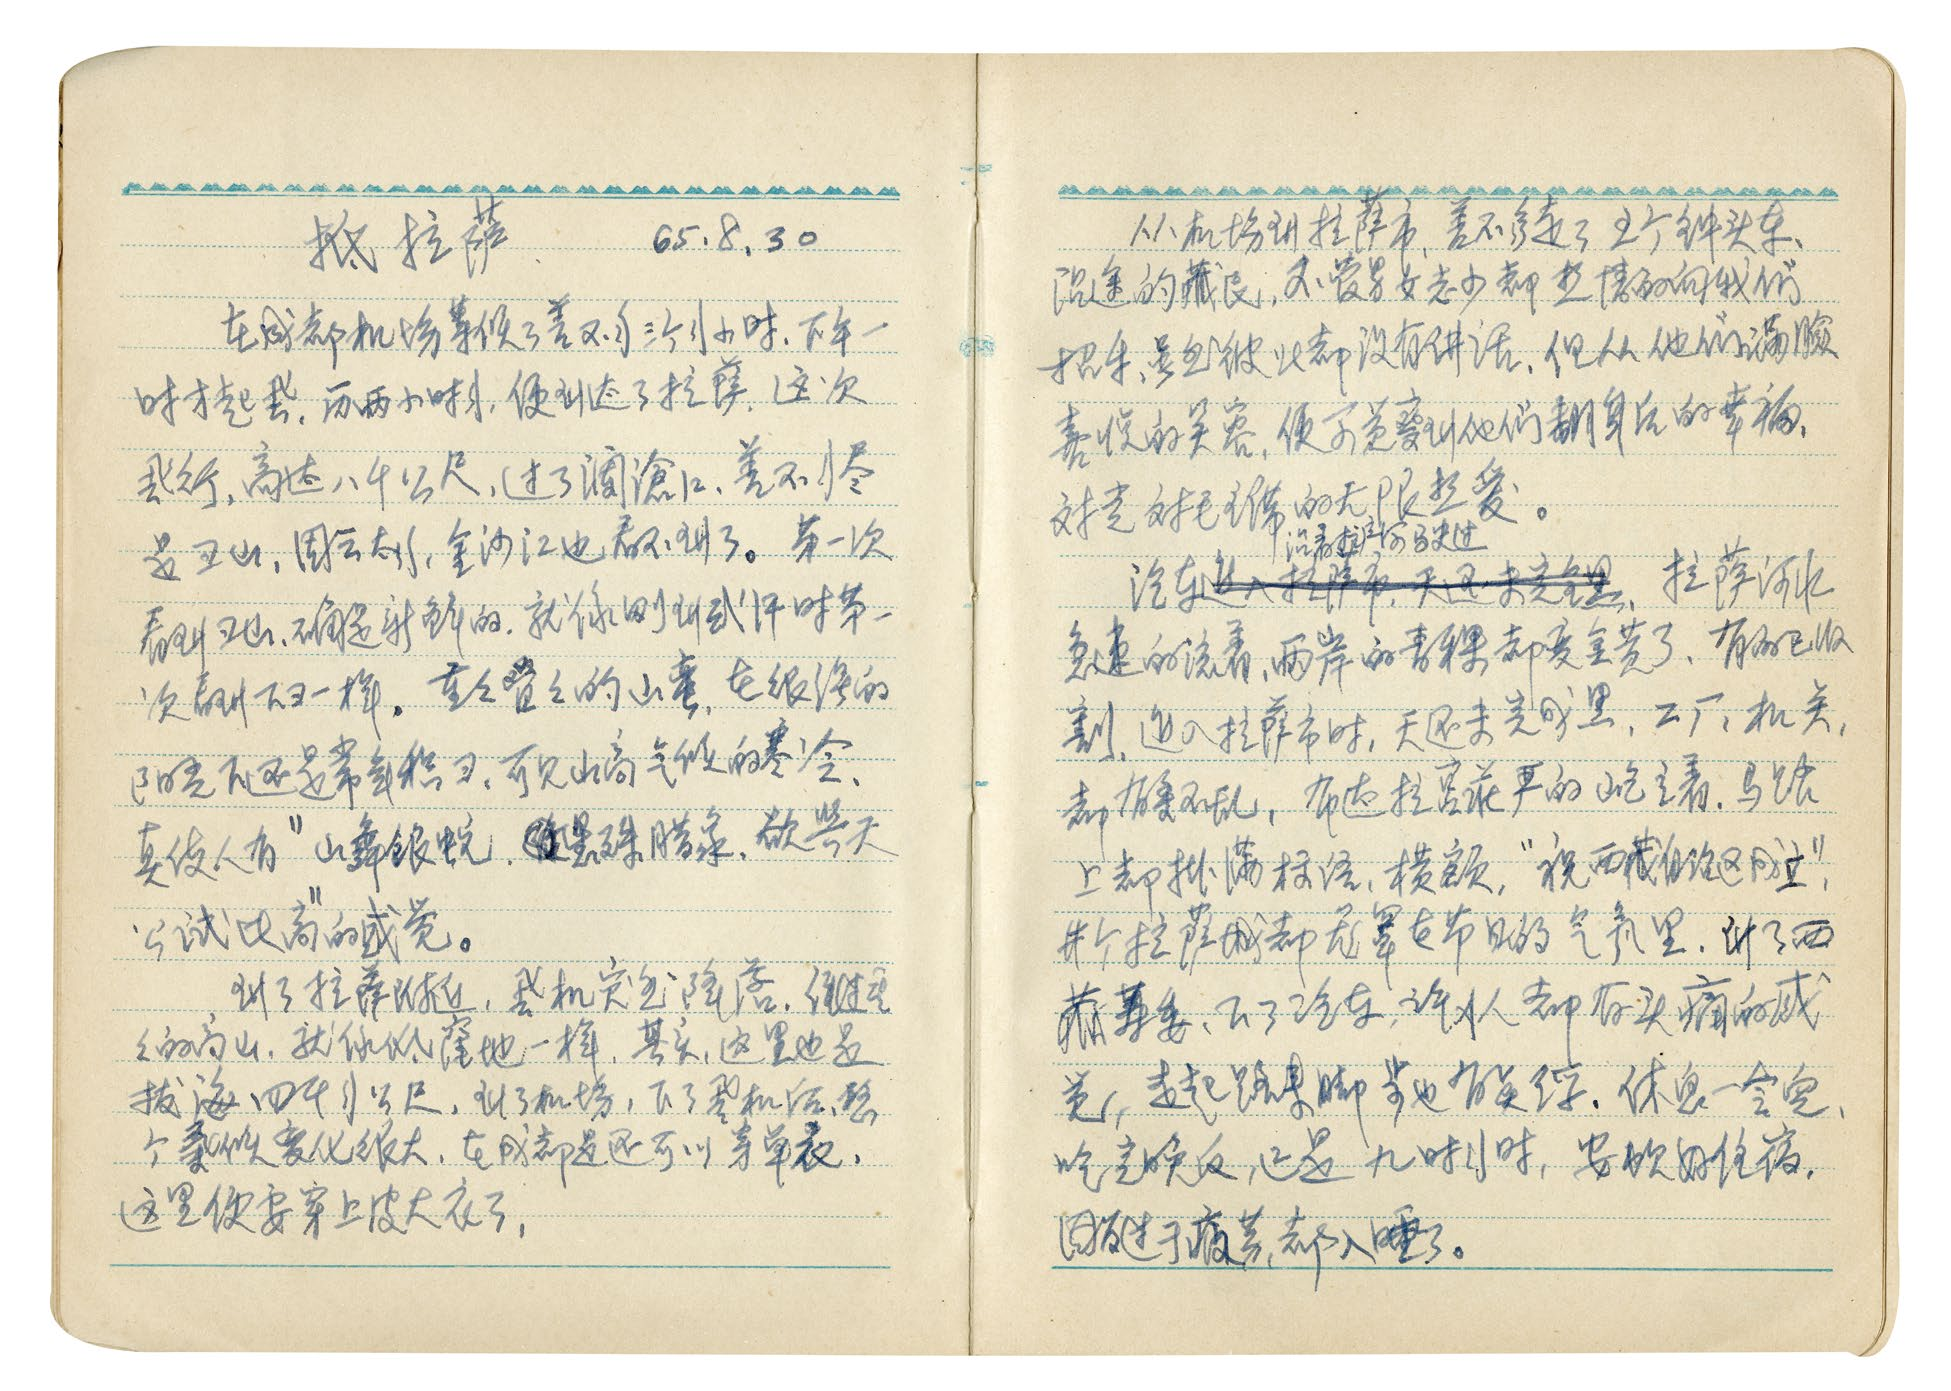 抵拉萨 65.8.30
在成都机场等候了差不多三个多小时，下午一
时才起飞，历两小时多，便到达了拉萨，这次
飞行，高达八千公尺，过了澜沧江，差不多尽
是雪山，因云太多，金沙江也看不到了。第一次
看到雪山，确是新鲜的，就像刚到武汉时第一
次看到下雪一样。重々叠々的山峦，在很强的
阳光下还是常年积雪，可见山高气候的寒冷，
真使人有"山舞银蛇，原驰腊象，欲与天
公试比高"的感觉。
到了拉萨附近，飞机突然降落，经过重
々的高山，就像低窪地一样，其实，这里也是
拔海四千多公尺，到了机场，下了飞机后，整
个气候变化很大，在成都是还可以穿单衣，
这里便要穿上皮大衣了，
从机场到拉萨市，差不多走了五个钟头车，
沿途的藏民，不管男女老少都热情的向我们
招手，虽然彼此都没有讲话，但从他们满脸
喜悦的笑容，便可觉察到他们翻身后的幸福，
对党对毛主席的无限热爱。
沿着拉萨河马路过
汽车进入拉萨市，天还未完全黑，拉萨河水
急速的流着，两岸的青稞都变金黄了，有的已收
割，进入拉萨市时，天还未完成黑，工厂，机关，
都有条不乱，布达拉宫庄严的屹立着，马路
上都挂满标语，横额，"祝西藏自治区成立"，
整个拉萨城都笼罩在节日的气氛里，到了西
藏筹委，下了汽车，许多人都有头痛的感
觉，走起路来脚步也有点浮，休息一会儿，
吃完晚饭，已是九时多时，安排好住宿，
因为过于疲劳，都入睡了。